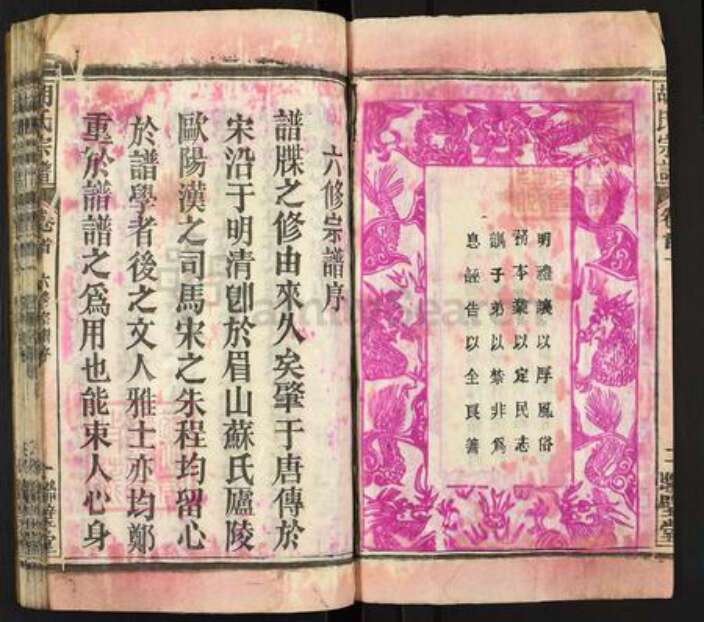 胡氏宗譜
卷首
二 聯璧堂
明禮讓以厚風俗
務本業以定民志
訓子弟以禁非爲
息誣告以全良善
六修宗譜序
譜牒之修由來久矣肇于唐傳於
宋沿于明清卽於眉山蘇氏廬陵
歐陽漢之司馬宋之朱程均留心
於譜學者後之文人雅士亦均鄭
重於譜譜之爲用也能束人心身
胡氏宗譜
卷首
六修宗譜序
一 聯璧堂
FamilySearch